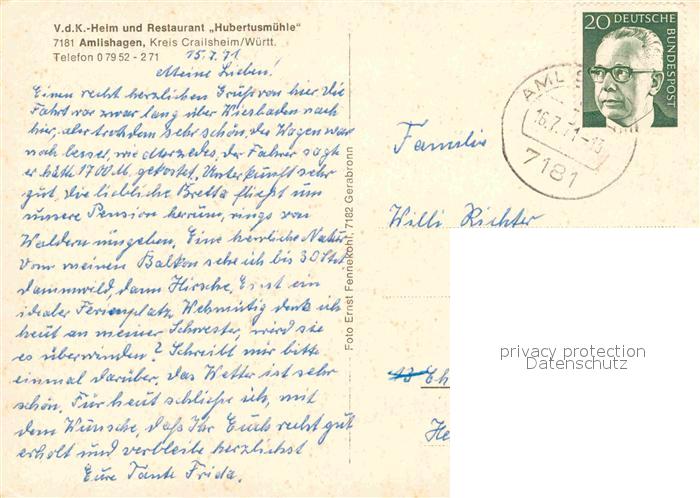 V.d.K.-Heim und Restaurant „Hubertusmühle"
7181 Amlishagen, Kreis Crailsheim/Württ.
Telefon 0 79 52 - 2 71
15.7.71
Meine Lieben!
Einen recht herzlichen Gruß von hier die
Fahrt war zwar lang über Wiesbaden nach
hier, aber trotzdem sehr schön, der Wagen war
noch besser, wie der Fahrer sagte
er hätte 1700 M. gekostet. Unterkunft sehr
gut, die liebliche Bretta fließt um
unsere Pension herum, rings von
Wäldern umgeben. Eine herrliche Natur
Vom meinen Balkon sehe ich bis 30 Stck
dammwild, dann Hirsche. Es ist ein
idealer Ferienplatz. Wehmütig denk ich
heut an meiner Schwester, wird sie
es überwinden? Schreibt mir bitte
einmal darüber. das Wetter ist sehr
schön. Für heut schließe ich, mit
dem Wunsche, daß Ihr Euch recht gut
erholt und verbleibe herzlichst
Eure Tante Frida.
Foto Ernst Fennekohl, 7182 Gerabronn
20 DEUTSCHE
BUNDESPOST
AMLIS
16.7.71-10
7181
Familie
Willi Richter
13 Eh
He
privacy protection
Datenschutz